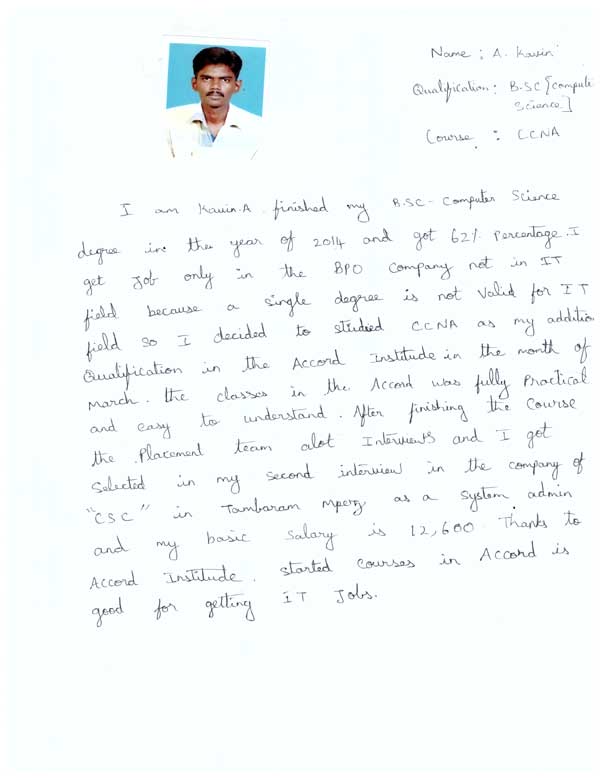 Name : A. Kavin
Qualification : B.SC [Compute
Science]
Course : CCNA
I am Kavin.A. finished my B.SC - Computer Science
degree in the year of 2014 and got 62% Percentage. I
get Job only in the BPO Company not in IT
field because a single degree is not Valid for IT
field so I decided to studied CCNA as my addition
Qualification in the Accord Institude in the month of
March. the classes in the Accord was fully Practical
and easy to understand. After finishing the Course
the Placement team alot Interviews and I got
Selected in my second interview in the company of
"CSC" in Tambaram as a system admin
and my basic Salary is 12,600. Thanks to
Accord Institude. started courses in Accord is
good for getting IT Jobs.